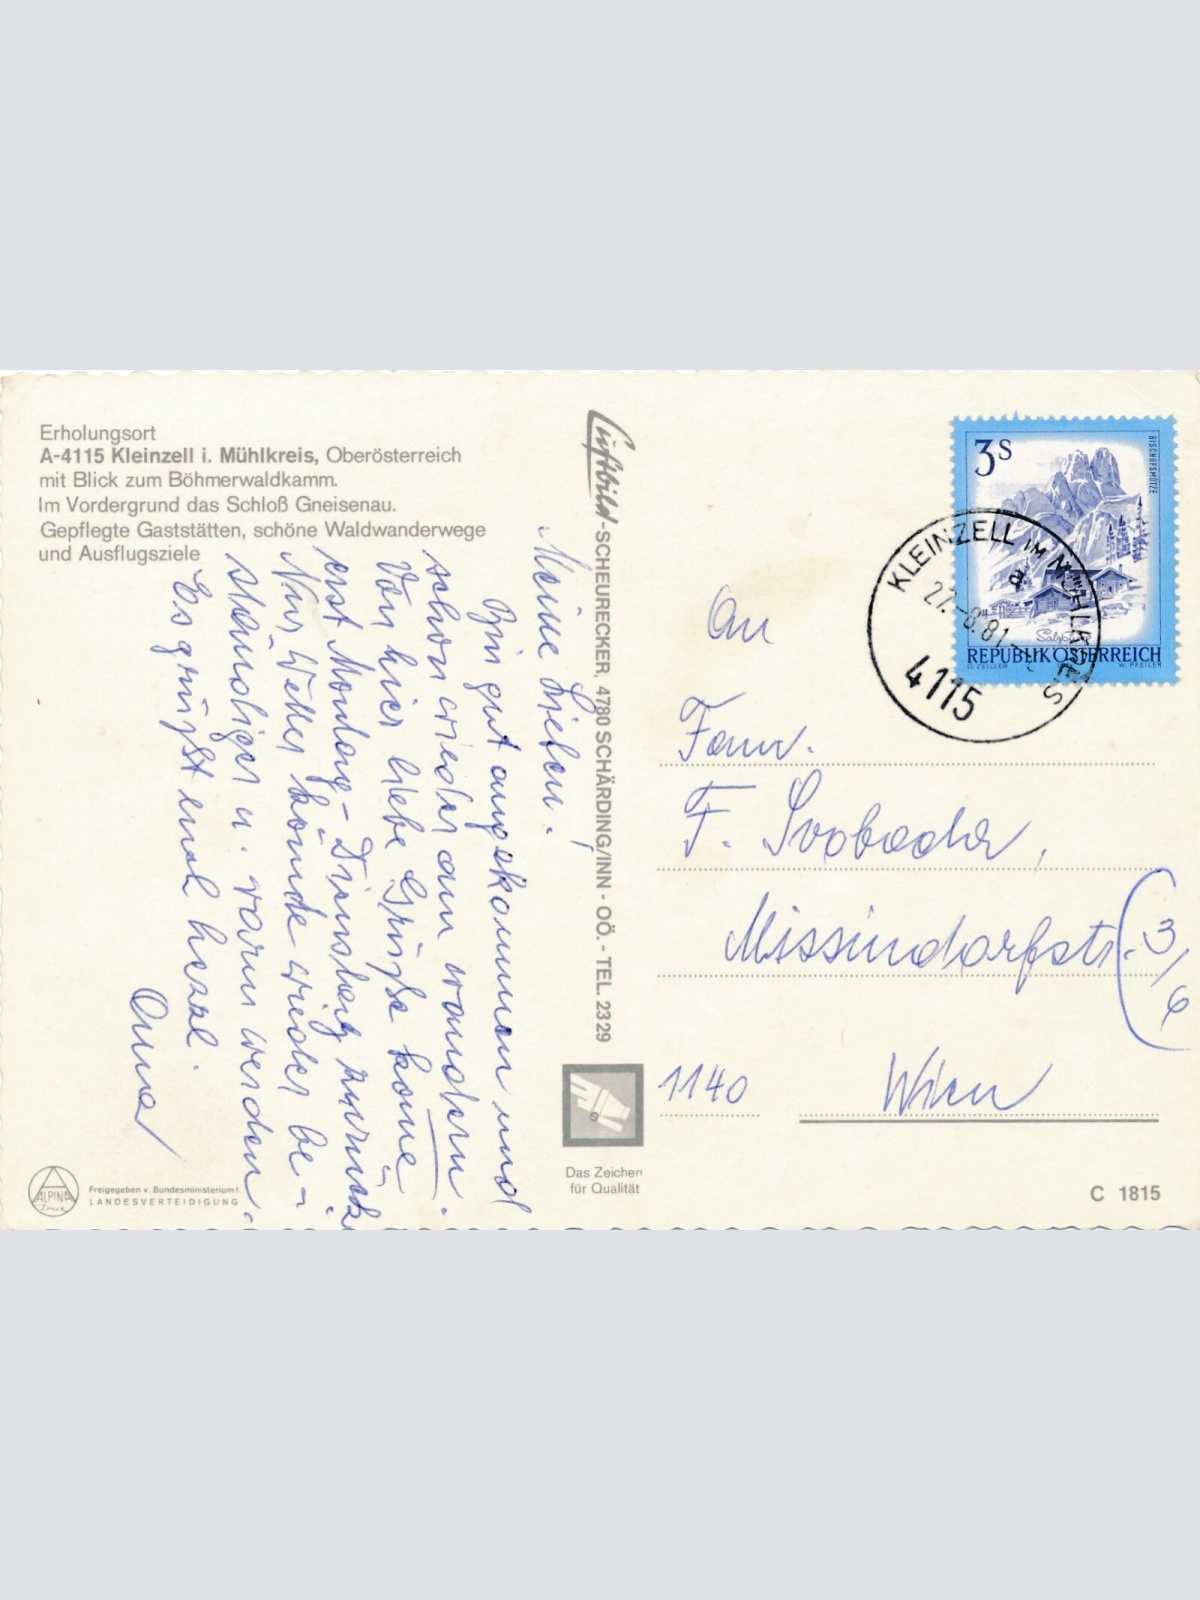 Erholungsort
A-4115 Kleinzell i. Mühlkreis, Oberösterreich
mit Blick zum Böhmerwaldkamm.
Im Vordergrund das Schloß Gneisenau.
Gepflegte Gaststätten, schöne Waldwanderwege
und Ausflugsziele
Meine Lieben!
Bin gut angekommen und
schon wieder am wandern.
Von hier liebe Grüße komme
erst Montag-Dienstag zurück
Nur Wetter könnte wieder be-
ständiger u. warm werden.
Es grüßt euch herzl.
Luftbild-SCHEURECKER, 4780 SCHÄRDING/INN - OÖ. - TEL. 2329
Das Zeichen
für Qualität
S
3 S
BISCHOFSMÜTZE
Salzburg
REPUBLIK ÖSTERREICH
O. ZEILLER
W. PFEILER
KLEINZELL IM MÜHLKREIS
a
27.-8.81
4115
An
Fam.
F. Svobeda,
Missindorfstr. 3/6
1140 Wien
ALPINA
Freigegeben v. Bundesministerium f.
LANDESVERTEIDIGUNG
C 1815